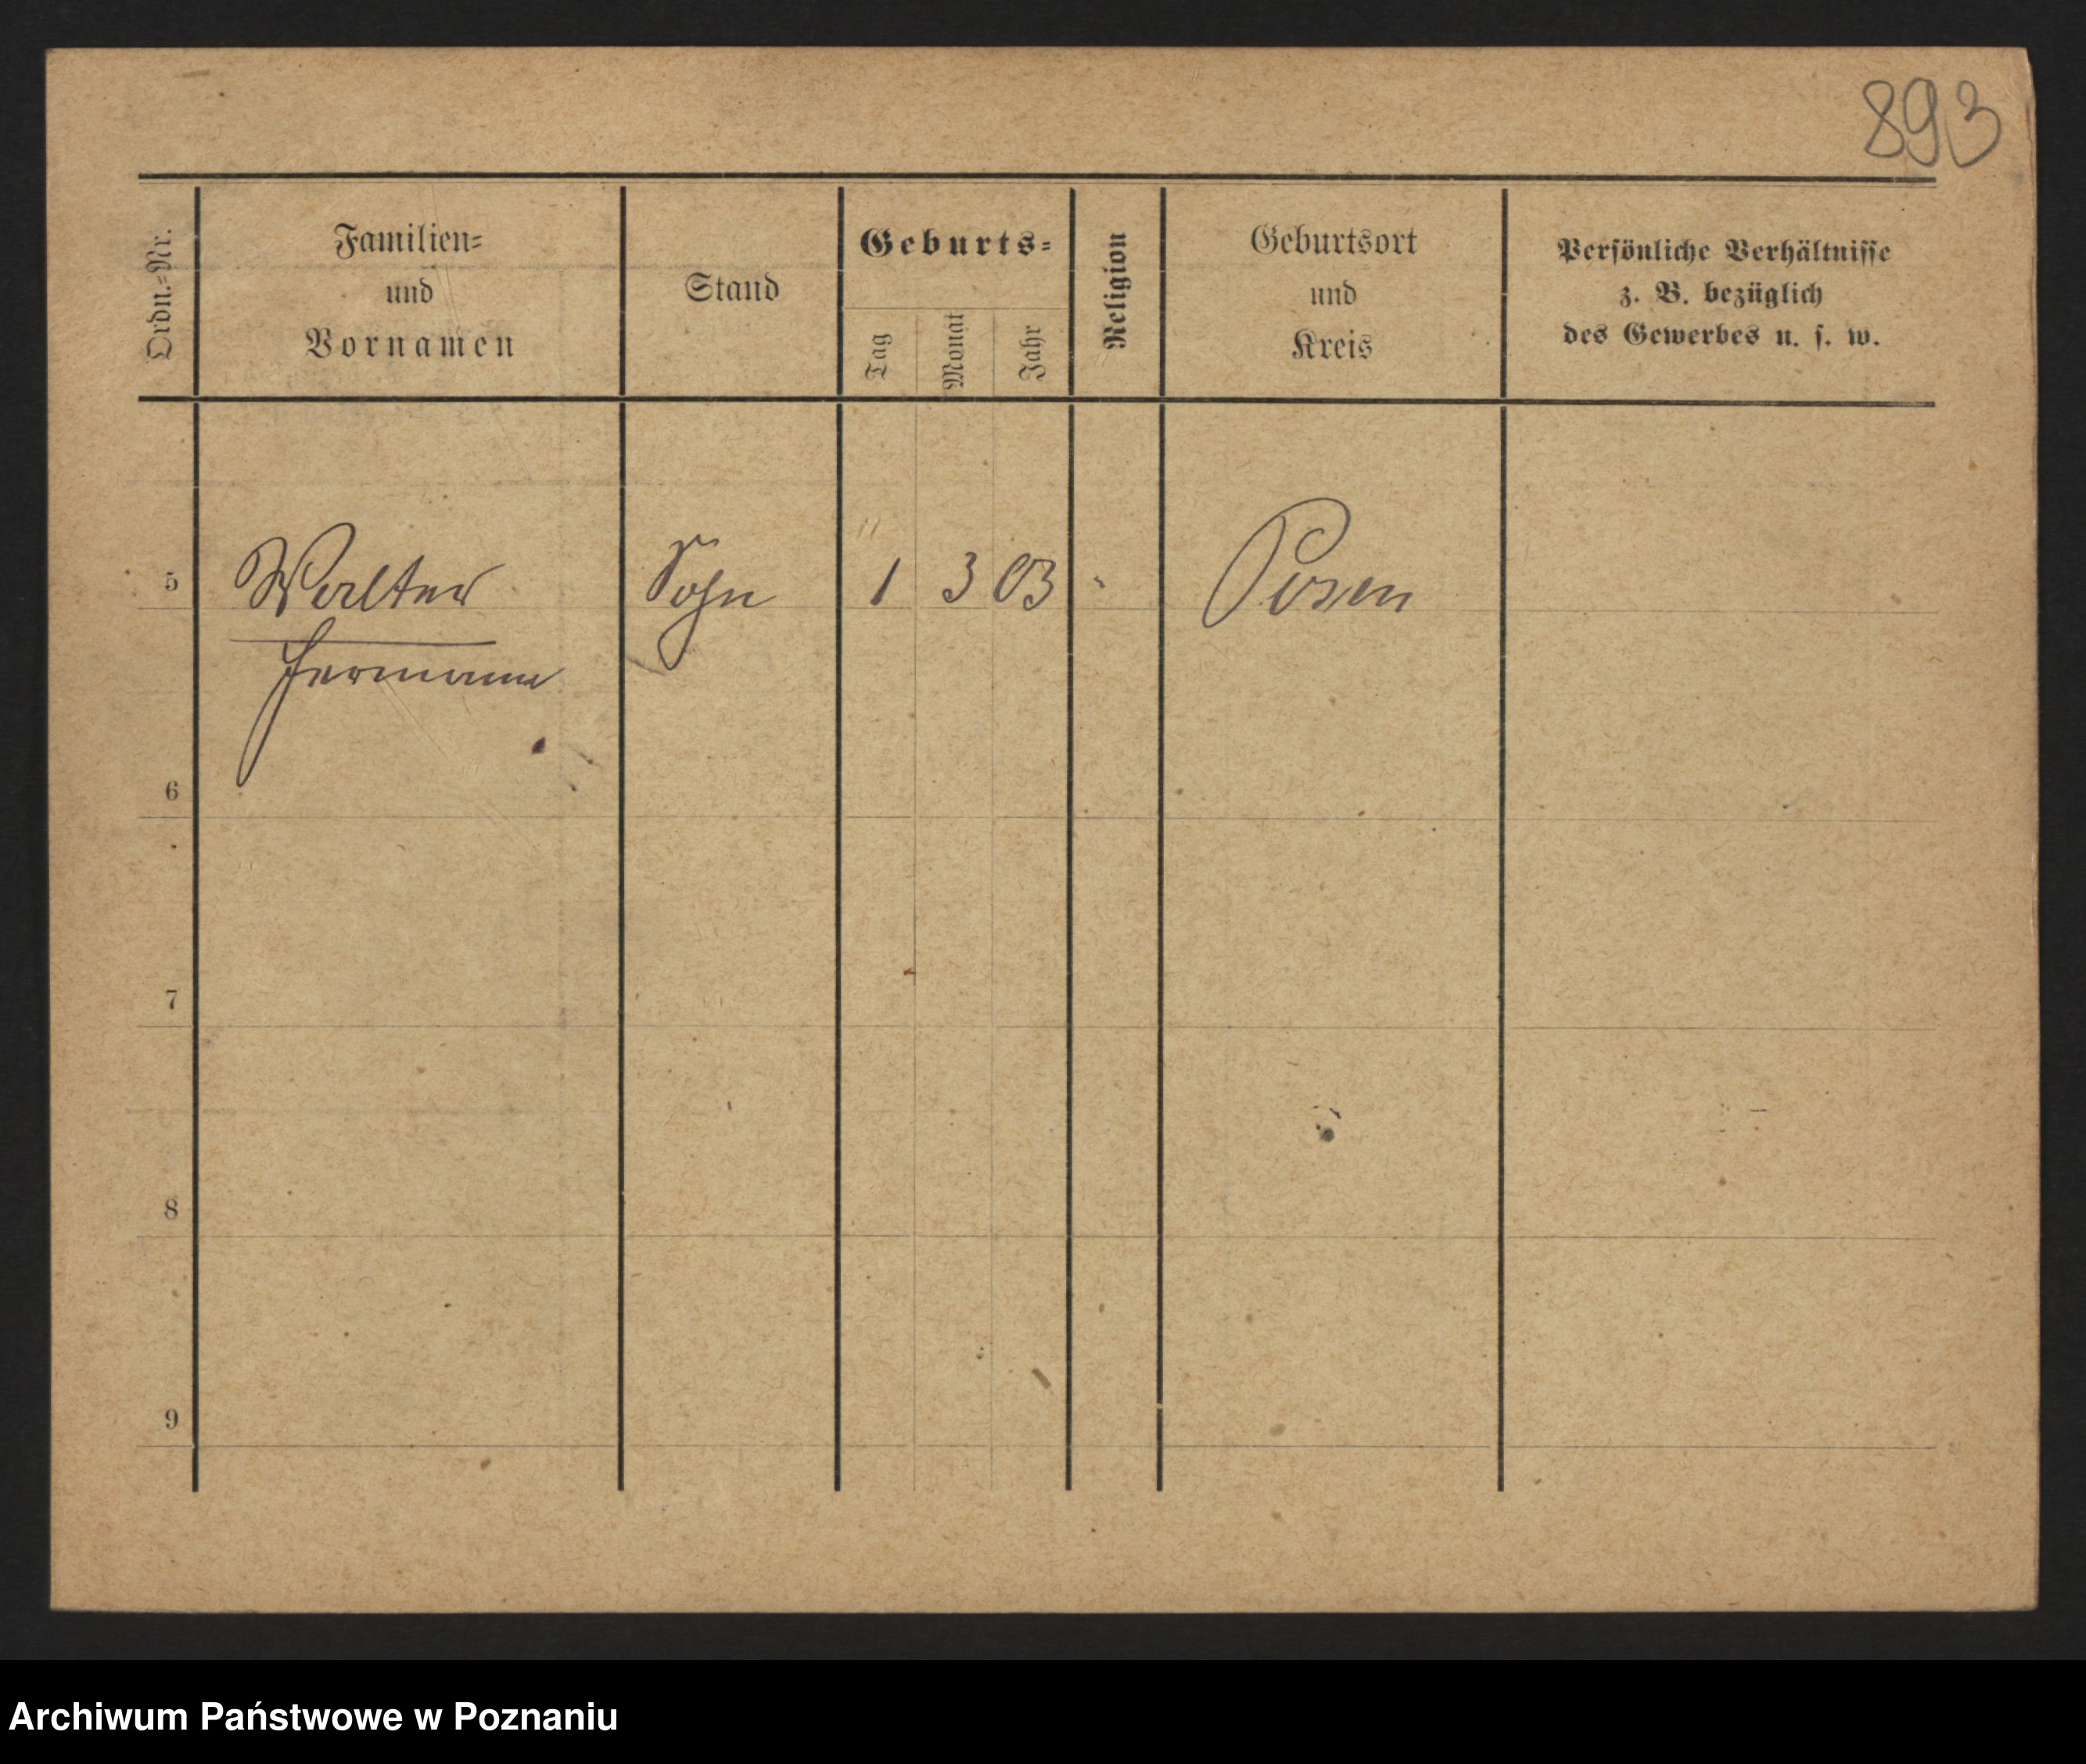 893
Ordn.-Nr.
Familien-
und
Vornamen
Stand
Geburts-
Tag
Monat
Jahr
Religion
Geburtsort
und
Kreis
Persönliche Verhältnisse
z. B. bezüglich
des Gewerbes u. s. w.
5 Walter Sohn 1 3 03 " Posen
Hermann
6
7
8
9
Archiwum Państwowe w Poznaniu